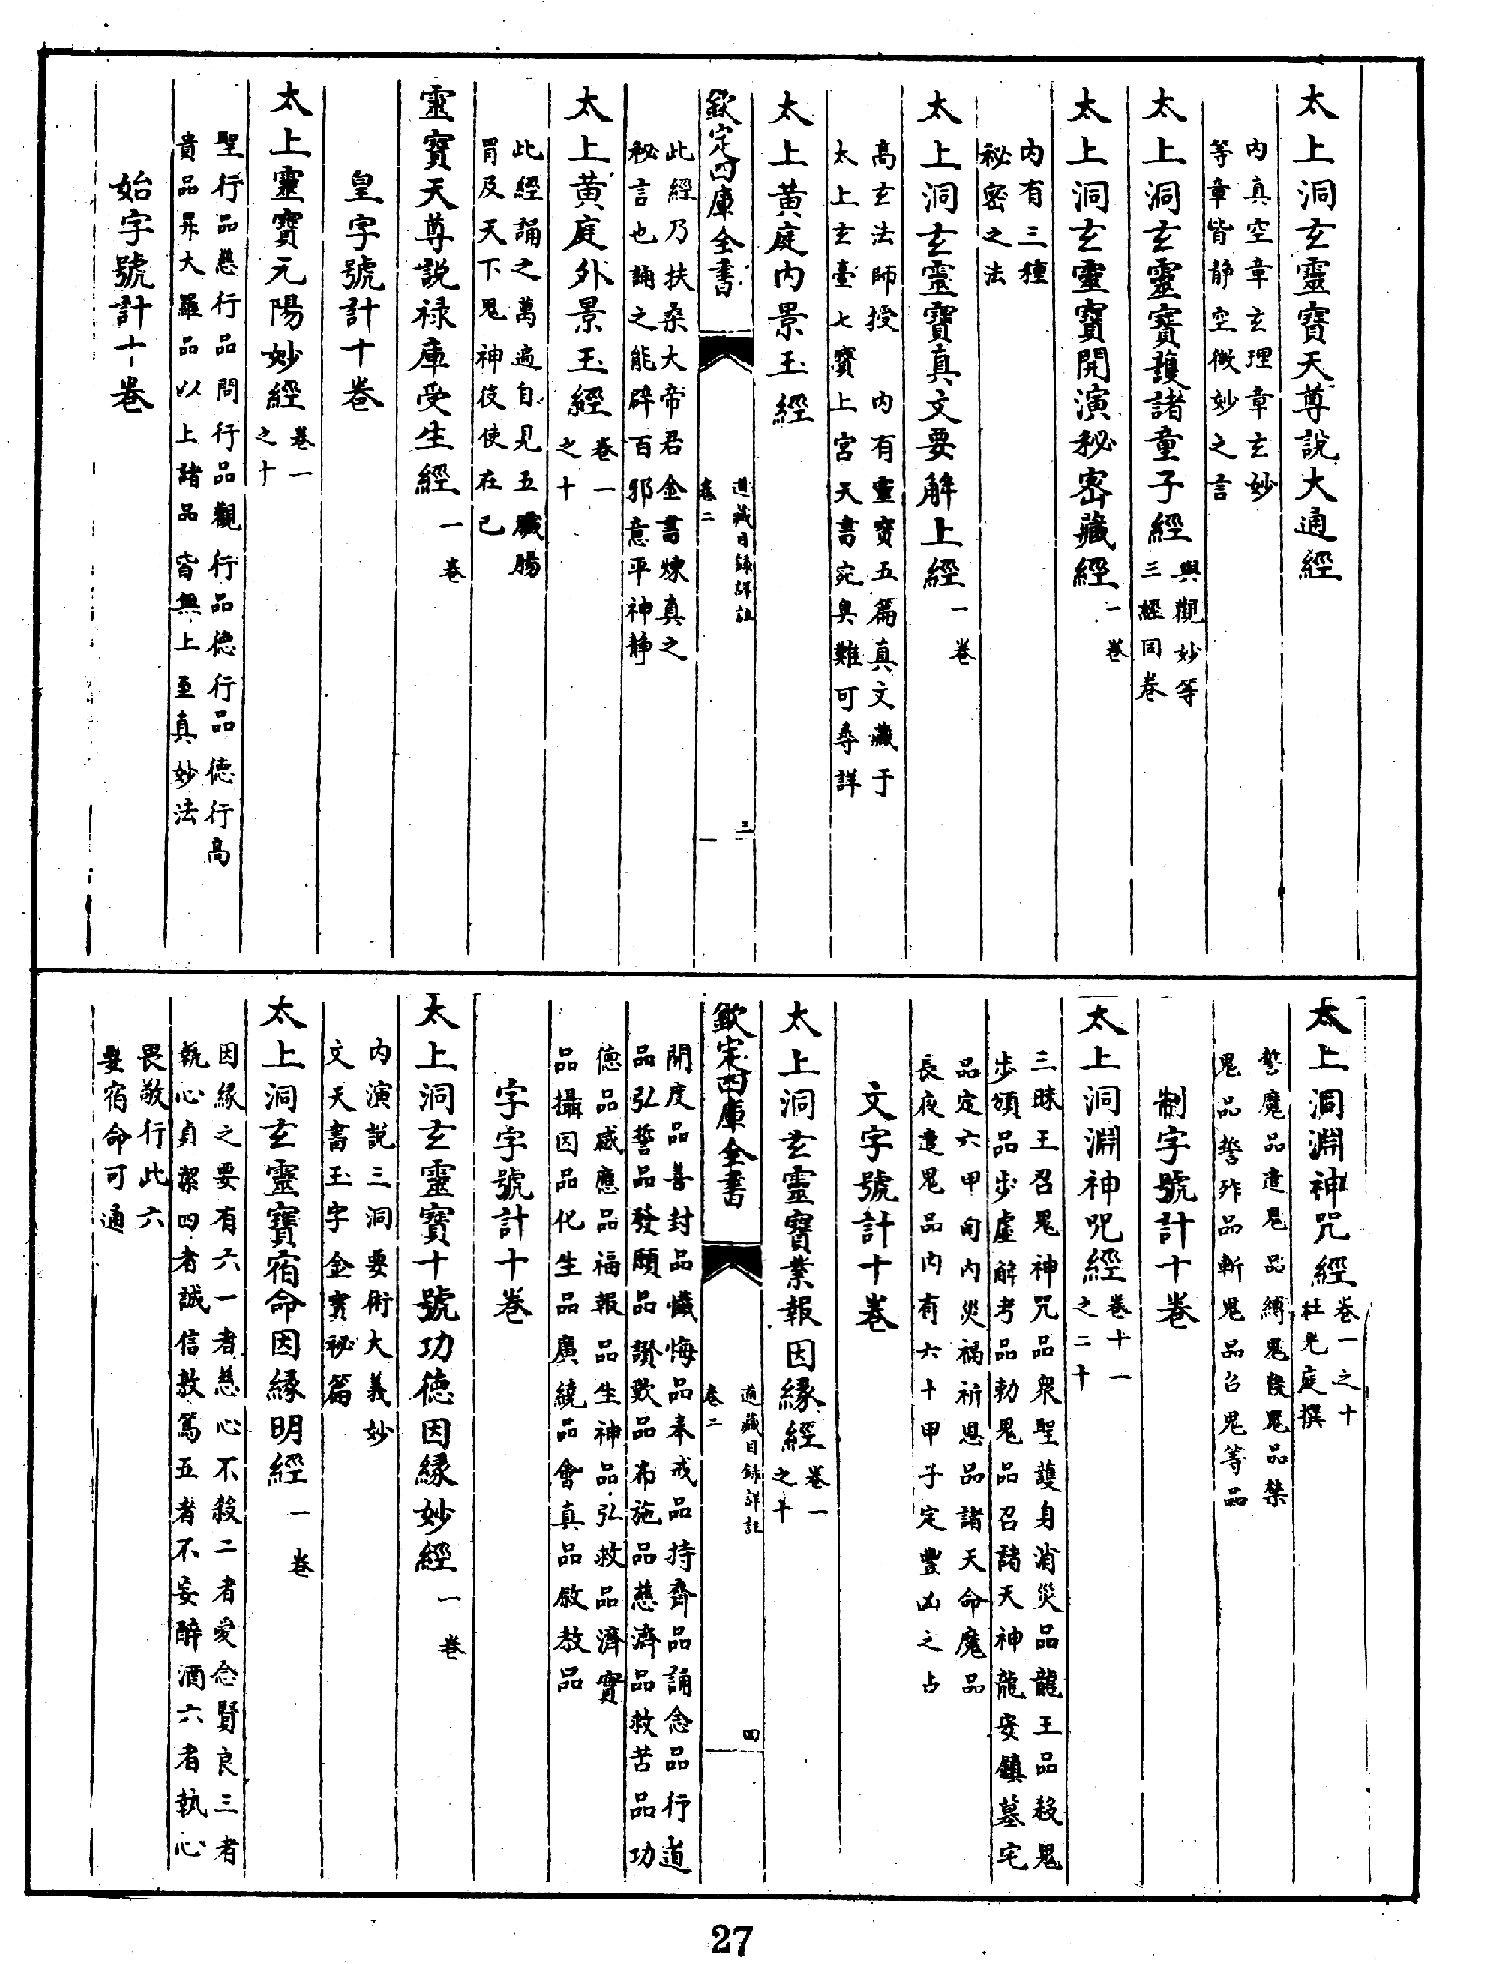 太上洞玄靈寶天尊說大通經
內真空章玄理章玄妙
等章皆靜空微妙之言
太上洞玄靈寶護諸童子經 與觀妙等
三經同卷
太上洞玄靈寶開演秘密藏經 一卷
內有三種
秘密之法
太上洞玄靈寶真文要解上經 一卷
高玄法師授 內有靈寶五篇真文藏于
太上玄臺七寶上宮天書宛奧難可尋詳
太上黃庭內景玉經
欽定四庫全書
道藏目錄詳註
卷二
三
此經乃扶桑大帝君金書煉真之
秘言也誦之能辟百邪意平神靜
太上黃庭外景玉經 卷一
之十
此經誦之萬遍自見五臟腸
胃及天下鬼神役使在己
靈寶天尊說祿庫受生經 一卷
皇字號計十卷
太上靈寶元陽妙經 卷一
之十
聖行品慈行品問行品觀行品德行品德行高
貴品昇大羅品以上諸品皆無上至真妙法
始字號計十卷
太上洞淵神咒經 卷一之十
杜光庭撰
誓魔品遣鬼品縛鬼品禁
鬼品誓殃品斬鬼品召鬼等品
制字號計十卷
太上洞淵神呪經 卷十一
之二十
三昧王召鬼神咒品衆聖護身消災品龍王品殺鬼
步頌品步虛解考品勅鬼品召諸天神龍安鎮墓宅
品定六甲旬內災禍祈恩品諸天命魔品
長夜遣鬼品內有六十甲子定豐凶之占
文字號計十卷
太上洞玄靈寶業報因緣經 卷一
之十
欽定四庫全書
道藏目錄詳註
卷二
四
開度品善封品懺悔品奉戒品持齋品誦念品行道
品弘誓品發願品讚歎品布施品慈濟品救苦品功
德品感應品福報品生神品弘救品濟實
品攝因品化生品廣繞品會真品啟教品
字字號計十卷
太上洞玄靈寶十號功德因緣妙經 一卷
內演說三洞要術大義妙
文天書玉字金寶秘篇
太上洞玄靈寶宿命因緣明經 一卷
因緣之要有六一者慈心不殺二者愛念賢良三者
執心貞潔四者誠信敦篤五者不妄醉酒六者執心
畏敬行此六
要宿命可通
27